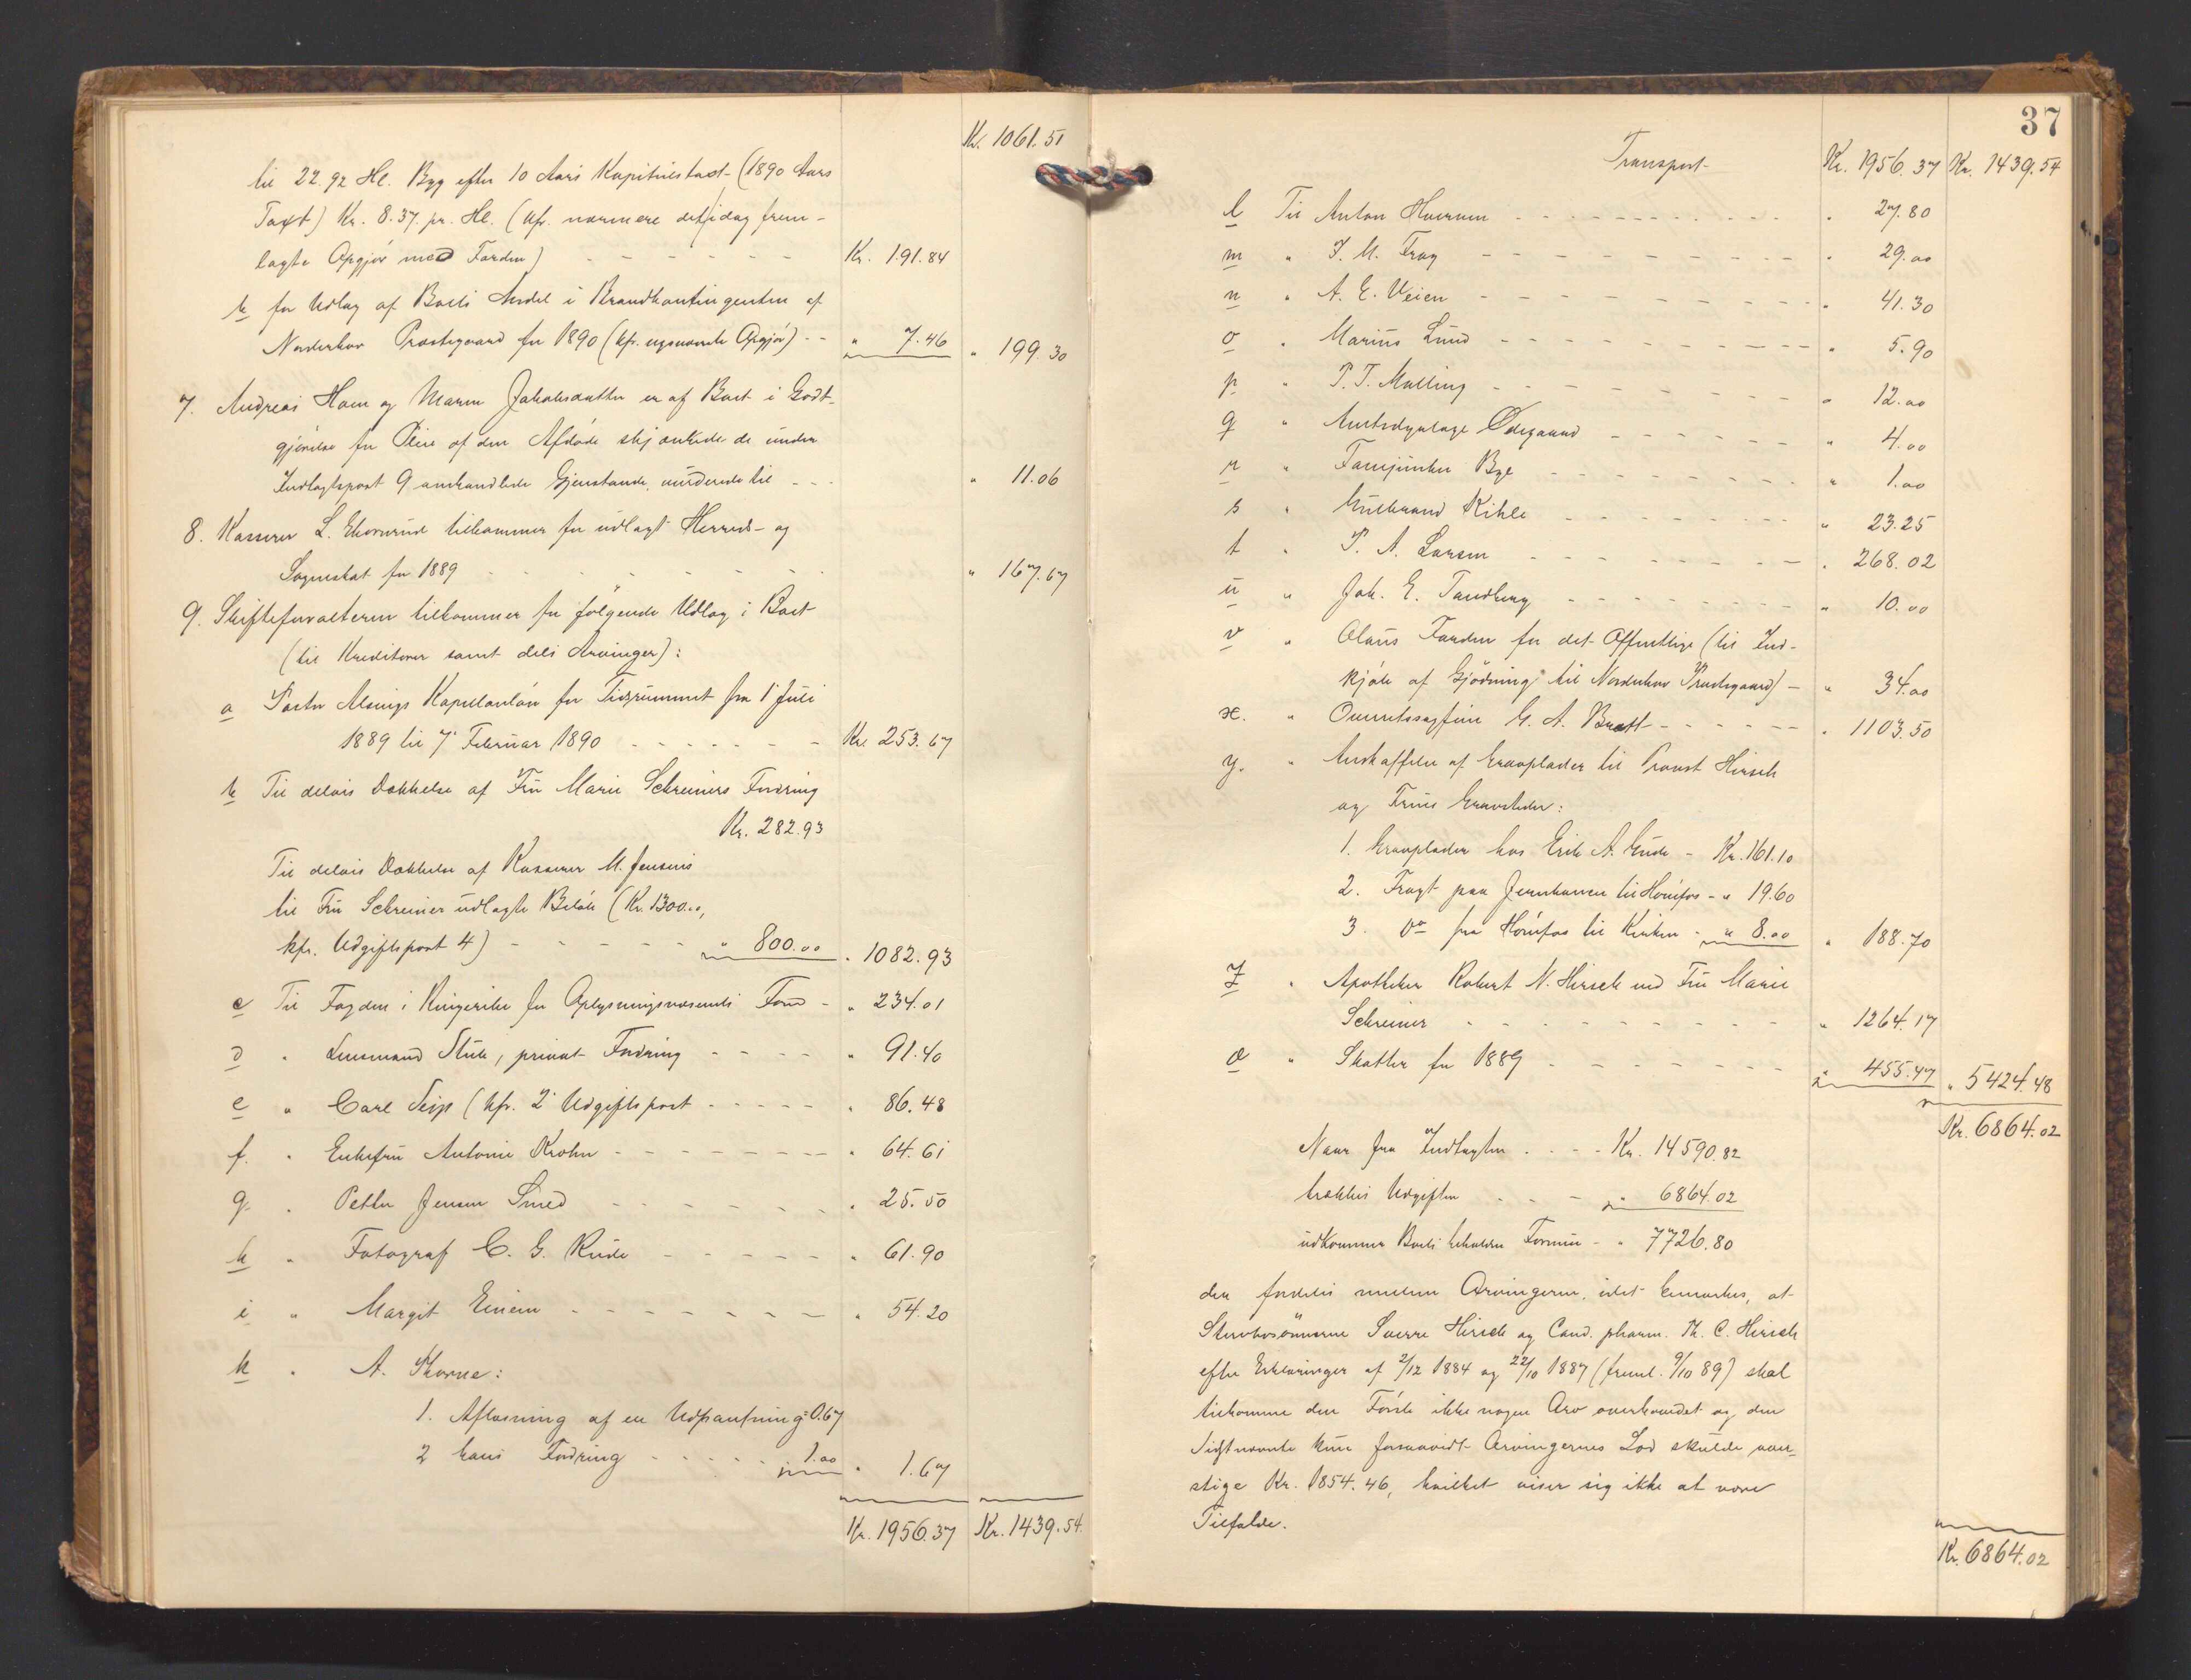 Kr. 1061.51
til 22.92 Hl. Byg efter 10 Aars Kapitulstaxt (1890 Aars
Taxt) Kr. 8.37. pr. Hl. (kfr. nærmere det idag frem-
lagte Opgjør med Farden) - - - - - - Kr. 191.84
b for Udlæg af Boets Andel i Brandkontingenten af
Norderhov Præstegaard for 1890 (kfr. nysnævnte Opgjør) - - " 7.46 " 199.30
7. Andreas Hom og Maren Jakobsdatter er af Boet i Godt-
gjørelse for Pleie af den Afdøde skjænkede de under
Indtægtspost 9 omhandlede Gjenstande, vurderede til - - - " 11.06
8. Kasserer L. Ekornrud tilkommer for udlagt Herreds- og
Sogneskat for 1889 - - - - - - " 167.67
9. Skifteforvalteren tilkommer for følgende Udlæg i Boet
(til Kreditorer samt dels Arvinger):
a Pastor Alsings Kapellanløn for Tidsrummet fra 1 Juli
1889 til 7' Februar 1890 - - - - - - Kr. 253.67
b Til delvis Dækkelse af Fru Marie Schreiners Fordring
Kr. 282.93
Til delvis Dækkelse af Kasserer M. Jensens
til Fru Schreiner udlagte Beløb (Kr. 1300.00,
kfr. Udgiftspost 4) - - - - - " 800.00 " 1082.93
c Til Fogden i Ringerike for Oplysningsvæsenets Fond - " 234.01
d " Lensmand Stub, privat Fordring - - - - " 91.40
e " Carl Seip (kfr. 2' Udgiftspost - - - - - " 86.48
f. " Enkefru Antonie Krohn - - - - - - - " 64.61
g. " Petter Jensen Smed - - - - - - - " 25.50
h " Fotograf C. G. Rude - - - - - - " 61.90
i " Margit Einem - - - - - - - " 54.20
k " A. Skorne:
1. Aflæsning af en Udpantning = 0.67
2 hans Fordring - - - - - 1.00 " 1.67
Kr. 1956.37 Kr. 1439.54.
37
Transport Kr. 1956.37 Kr. 1439.54
l Til Anton Hverven - - - - - - - - - " 27.80
m " J. M. Frog - - - - - - - - - " 29.00
n " A. E. Veien - - - - - - - - - - " 41.30
o " Marius Lund - - - - - - - - - - " 5.90
p " P. T. Malling - - - - - - - - " 12.00
q " Amtsdyrlæge Ødegaard - - - - - - " 4.00
r " Fanejunker Bye - - - - - - - - " 1.00
s " Gulbrand Kihle - - - - - - - - " 23.25
t " P. A. Larsen - - - - - - - - " 268.02
u " Joh. E. Tandberg - - - - - - - - " 10.00
v " Olaus Farden for det Offentlige (til Ind-
kjøb af Gjødning til Norderhov Præstegaard) - " 34.00
x. " Overretssagfører G. A. Bratt - - - - - - " 1103.50
y. " Anskaffelse af Gravplader til Provst Hirsch
og Frues Gravsteder:
1. Gravplader hos Erik A. Gude - Kr. 161.10
2. Fragt paa Jernbanen til Hønefos - " 19.60
3. Do fra Hønefos til Kirken - " 8.00 " 188.70
z " Apotheker Robert N. Hirsch ved Fru Marie
Schreiner - - - - - - - - " 1264.17
ø " Skatter for 1889 - - - - - - - " 455.47 " 5424.48
Kr. 6864.02
Naar fra Indtægten - - - - Kr. 14590.82
trækkes Udgiften - - - - " 6864.02
udkommer Boets beholdne Formue - " 7726.80
der fordeles mellem Arvingerne, idet bemærkes, at
Stervbosønnerne Sverre Hirsch og Cand. pharm. Th. C. Hirsch
efter Erklæringer af 2/12 1884 og 22/10 1887 (freml. 9/10 89) skal
tilkomme den Første ikke nogen Arv overhovedet og den
Sidstnævnte kun forsaavidt Arvingernes Lod skulde over-
stige Kr. 1854.46, hvilket viser sig ikke at være
Tilfælde.
Kr. 6864.02